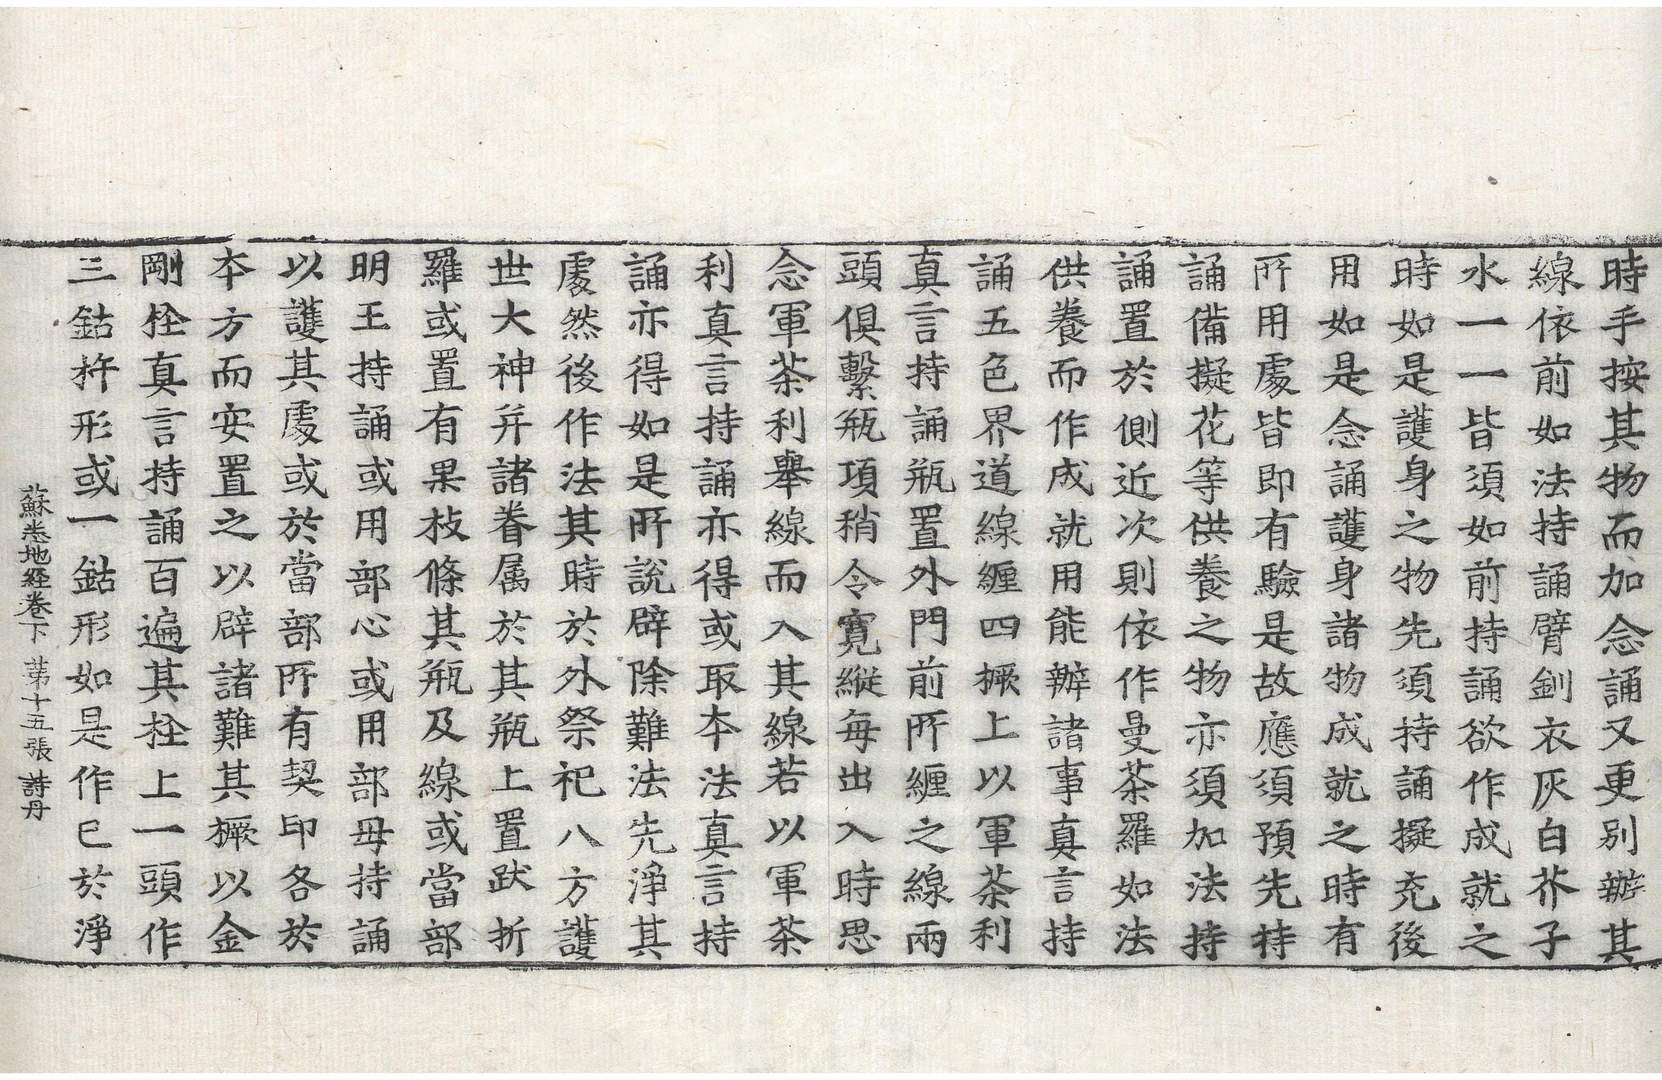 時手按其物而加念誦又更別辦其
線依前如法持誦臂釧衣灰白芥子
水一一皆須如前持誦欲作成就之
時如是護身之物先須持誦擬充後
用如是念誦護身諸物成就之時有
所用處皆即有驗是故應須預先持
誦備擬花等供養之物亦須加法持
誦置於側近次則依作曼荼羅如法
供養而作成就用能辦諸事真言持
誦五色界道線纏四橛上以軍荼利
真言持誦瓶置外門前所纏之線兩
頭俱繫瓶項稍令寬縱每出入時思
念軍荼利舉線而入其線若以軍荼
利真言持誦亦得或取本法真言持
誦亦得如是所說辟除難法先淨其
處然後作法其時於外祭祀八方護
世大神并諸眷属於其瓶上置跃折
羅或置有果枝條其瓶及線或當部
明王持誦或用部心或用部母持誦
以護其處或於當部所有契印各於
本方而安置之以辟諸難其橛以金
剛栓真言持誦百遍其栓上一頭作
三鈷杵形或一鈷形如是作已於淨
蘇悉地經卷下 第十五張 詩丹